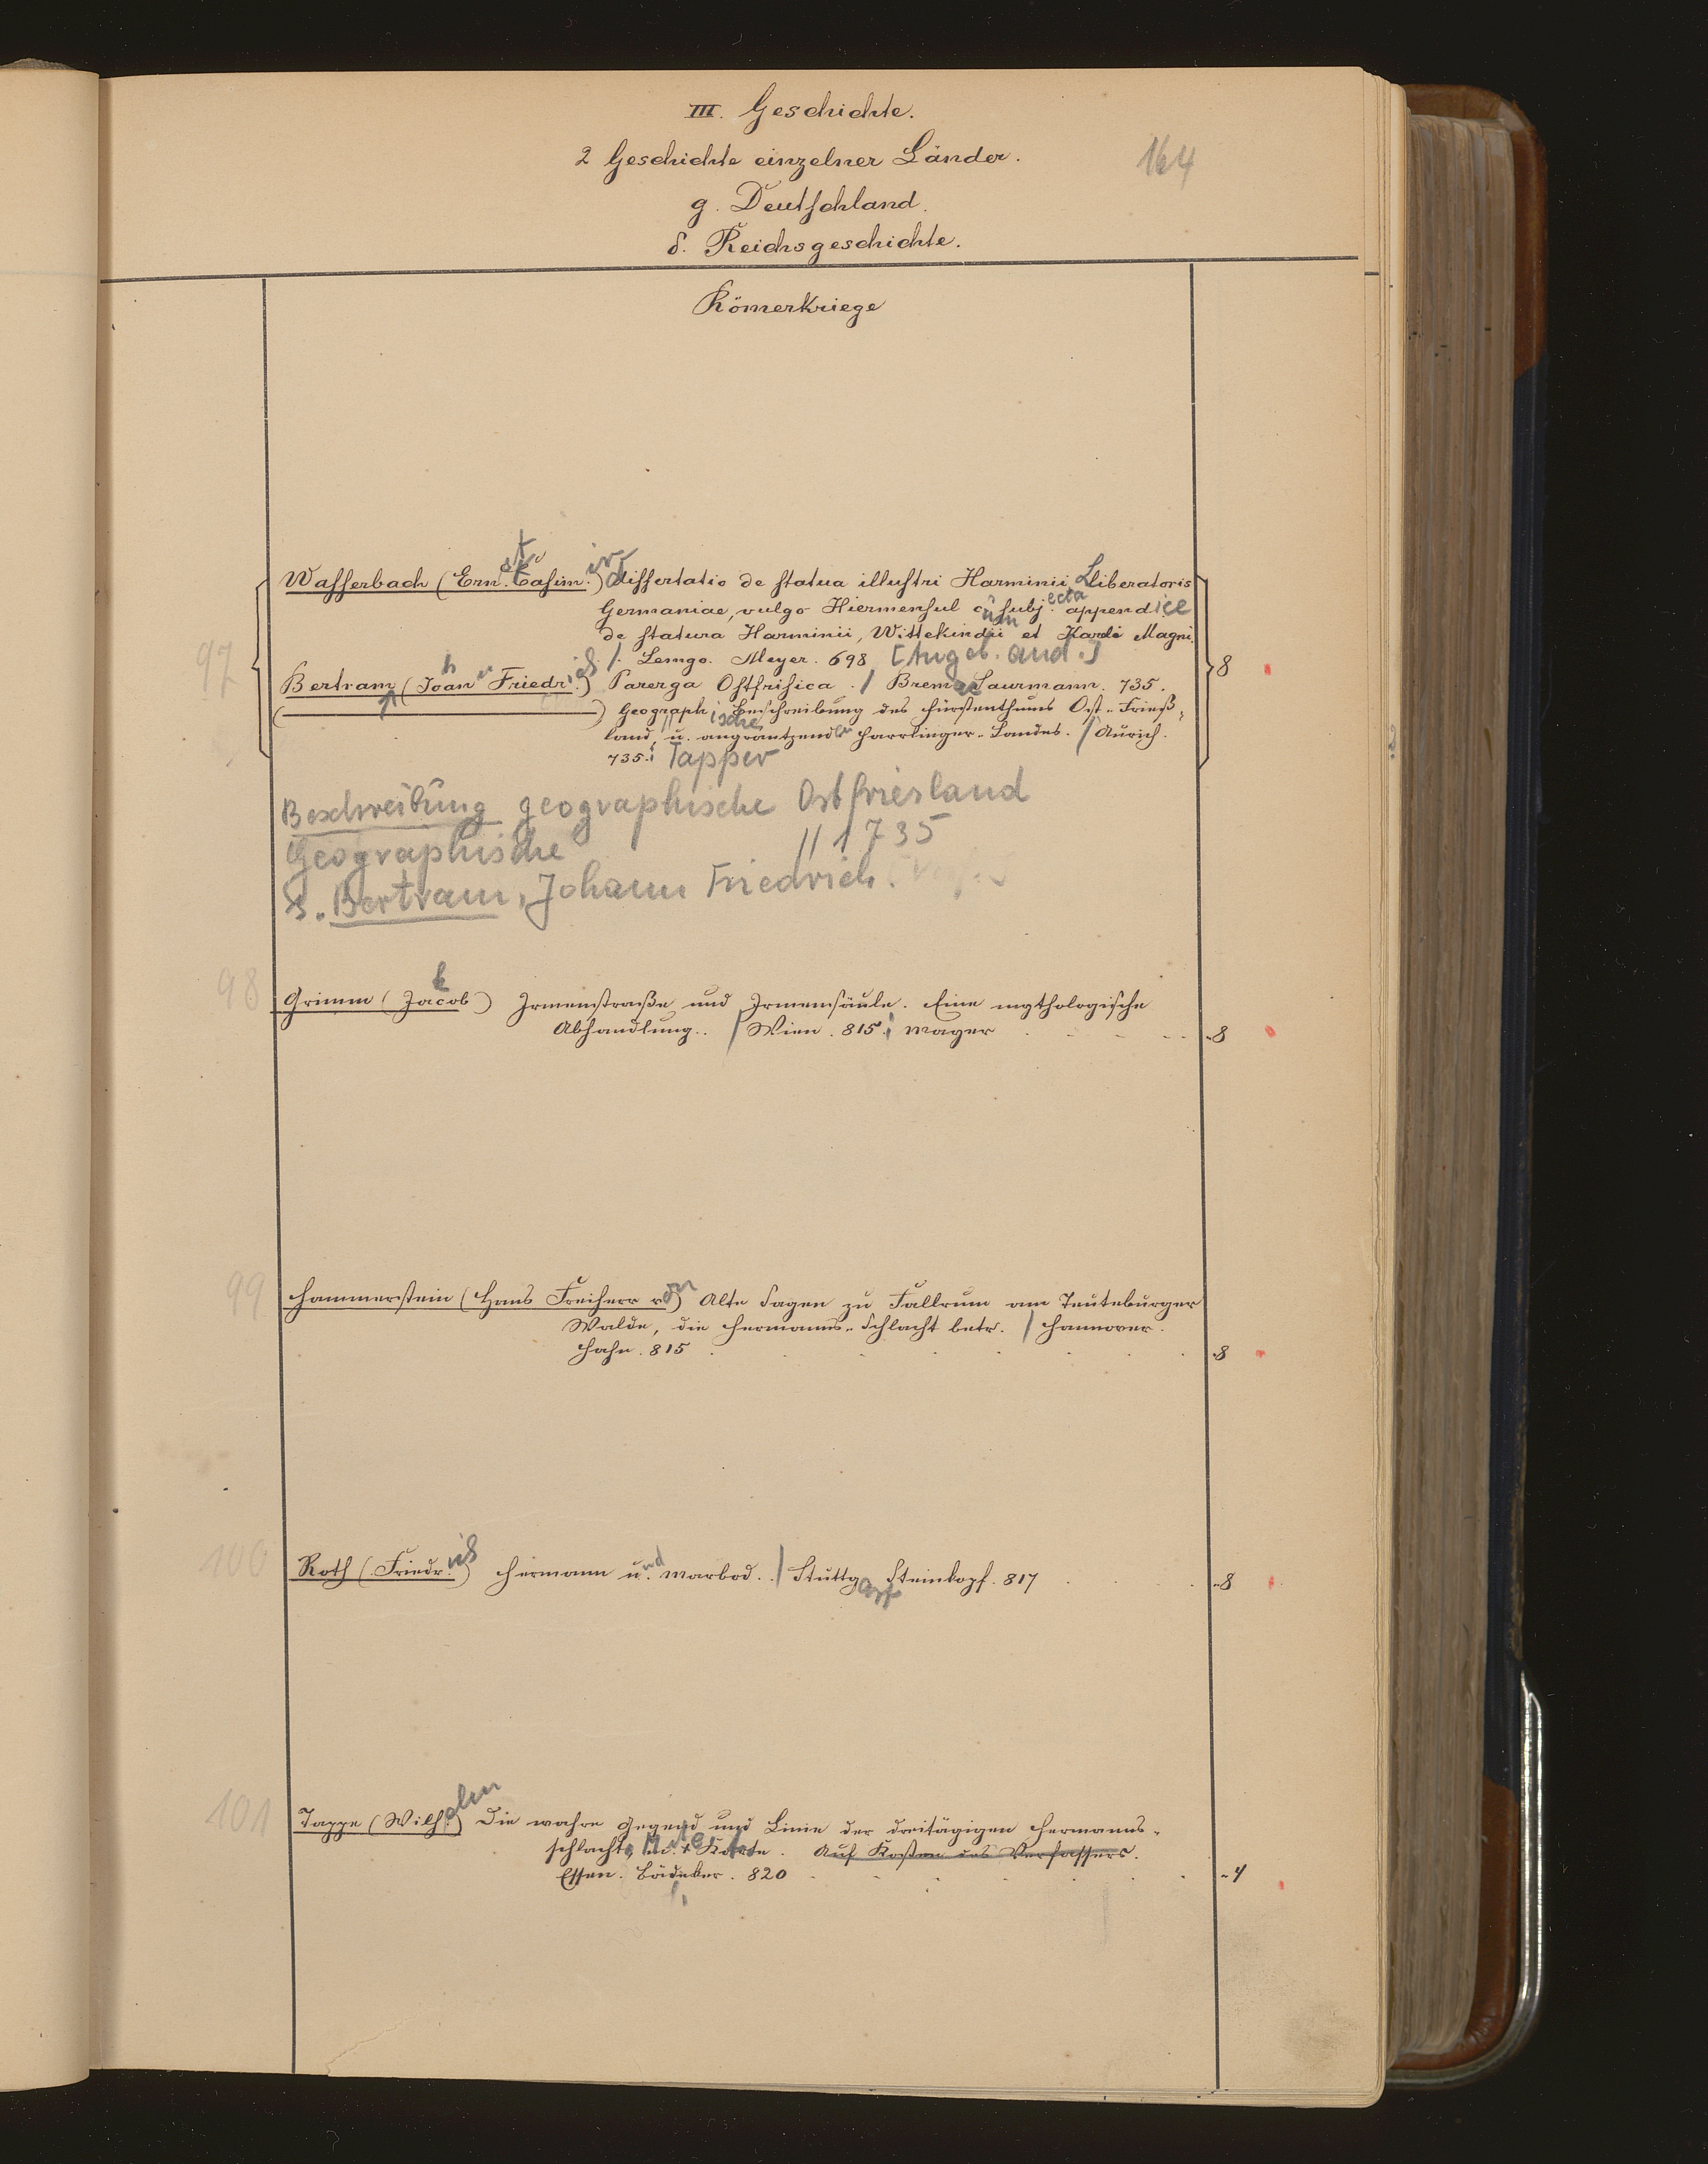 III. Geschichte.
164
2 Geschichte einzelner Länder.
g. Deutschland.
δ. Reichsgeschichte.
Römerkriege
97 Wasserbach (Ernst Casimir) dissertatio de statua illustri Harminii Liberatoris
Germaniae, vulgo Hiermensul cum subjecta appendice
de statura Harminii, Wittekindii et Karoli Magni.
/. Lemgo. Meyer. 698 [Angeb. and.]
8
Bertram (Johann Friedrich) Parerga Ostfrisica. / Bremae Saurmann. 735.
(———) Geographische Beschreibung des Fürstenthums Ost-Frieß-
land, u. angräntzenden Harrlinger-Landes. / Aurich.
735.: Tapper
Beschreibung geographische Ostfriesland
Geographische // 1735
s. Bertram, Johann Friedrich.
98 Grimm (Jacob) Irmenstraße und Irmensäule. Eine mythologische
Abhandlung.. / Wien. 815.: Mayer 8
99 Hammerstein (Hans Freiherr von) Alte Sagen zu Fallrum am Teuteburger
Walde, die Hermanns-Schlacht betr. / Hannover.
Hahn. 815 8
100 Roth (Friedrich) Hermann und Marbod. / Stuttgart Steinkopf. 817 8
101 Tappe (Wilhelm) Die wahre Gegend und Linie der dreitägigen Hermanns-
schlacht. Mit 1 Karte. Auf Kosten des Verfassers.
Essen. Bädeker. 820 4